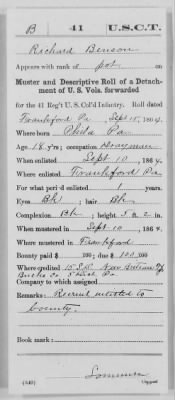 B 41 U.S.C.T.
Richard Benson
Appears with rank of pvt on
Muster and Descriptive Roll of a Detach-
ment of U. S. Vols. forwarded
for the 41 Reg't U. S. Col'd Infantry. Roll dated
Frankford Pa Sept 15, 1864.
Where born Phila Pa
Age 18 y'rs; occupation Drayman
When enlisted Sept 10, 1864.
Where enlisted Frankford Pa
For what period enlisted 1 years.
Eyes Blk; hair Blk
Complexion Blk; height 5 ft. 2 in.
When mustered in Sept 10, 1864.
Where mustered in Frankford
Bounty paid $ 100; due $ 100 100
Where credited
Bucks Co 5 Dist Pa
Company to which assigned
Remarks: Recruit entitled to
bounty.
Book mark:
(449) Copyist.